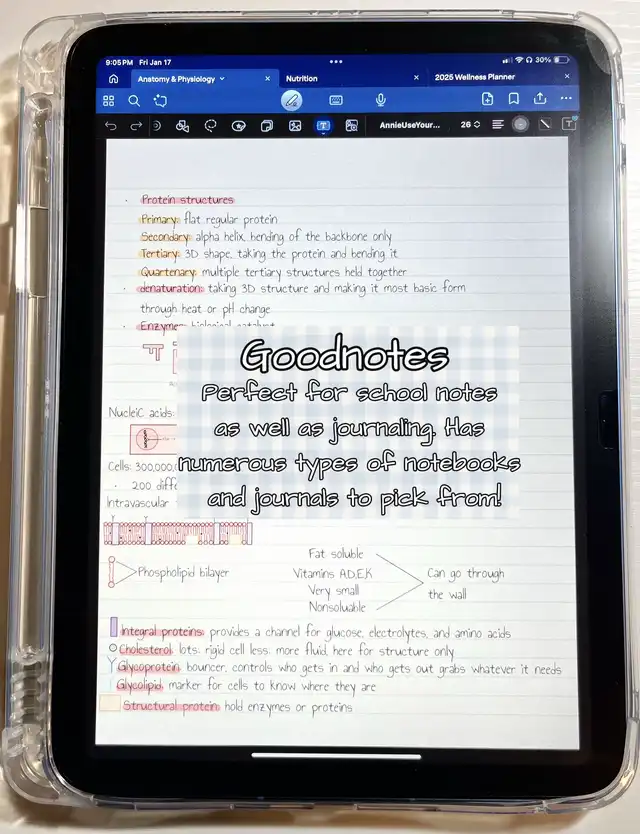 9:05 PM Fri Jan 17
30%
Anatomy & Physiology
Nutrition
2025 Wellness Planner
AnnieUseYour... 26
Protein structures
Primary: flat regular protein
Secondary: alpha helix, bending of the backbone only
Tertiary: 3D shape, taking the protein and bending it
Quartenary: multiple tertiary structures held together
denaturation: taking 3D structure and making it most basic form
through heat or pH change
Enzymes: biological catalyst
Goodnotes
Perfect for school notes
as well as journaling. Has
numerous types of notebooks
and journals to pick from!
NucleiC acids:
Cells: 300,000,0
200 diffe
Intravascular
Phospholipid bilayer
Fat soluble
Vitamins A,D,E,K
Very small
Nonsoluable
Can go through
the wall
Integral proteins: provides a channel for glucose, electrolytes, and amino acids
Cholesterol: lots: rigid cell less: more fluid, here for structure only
Glycoprotein: bouncer, controls who gets in and who gets out grabs whatever it needs
Glycolipid: marker for cells to know where they are
Structural protein: hold enzymes or proteins